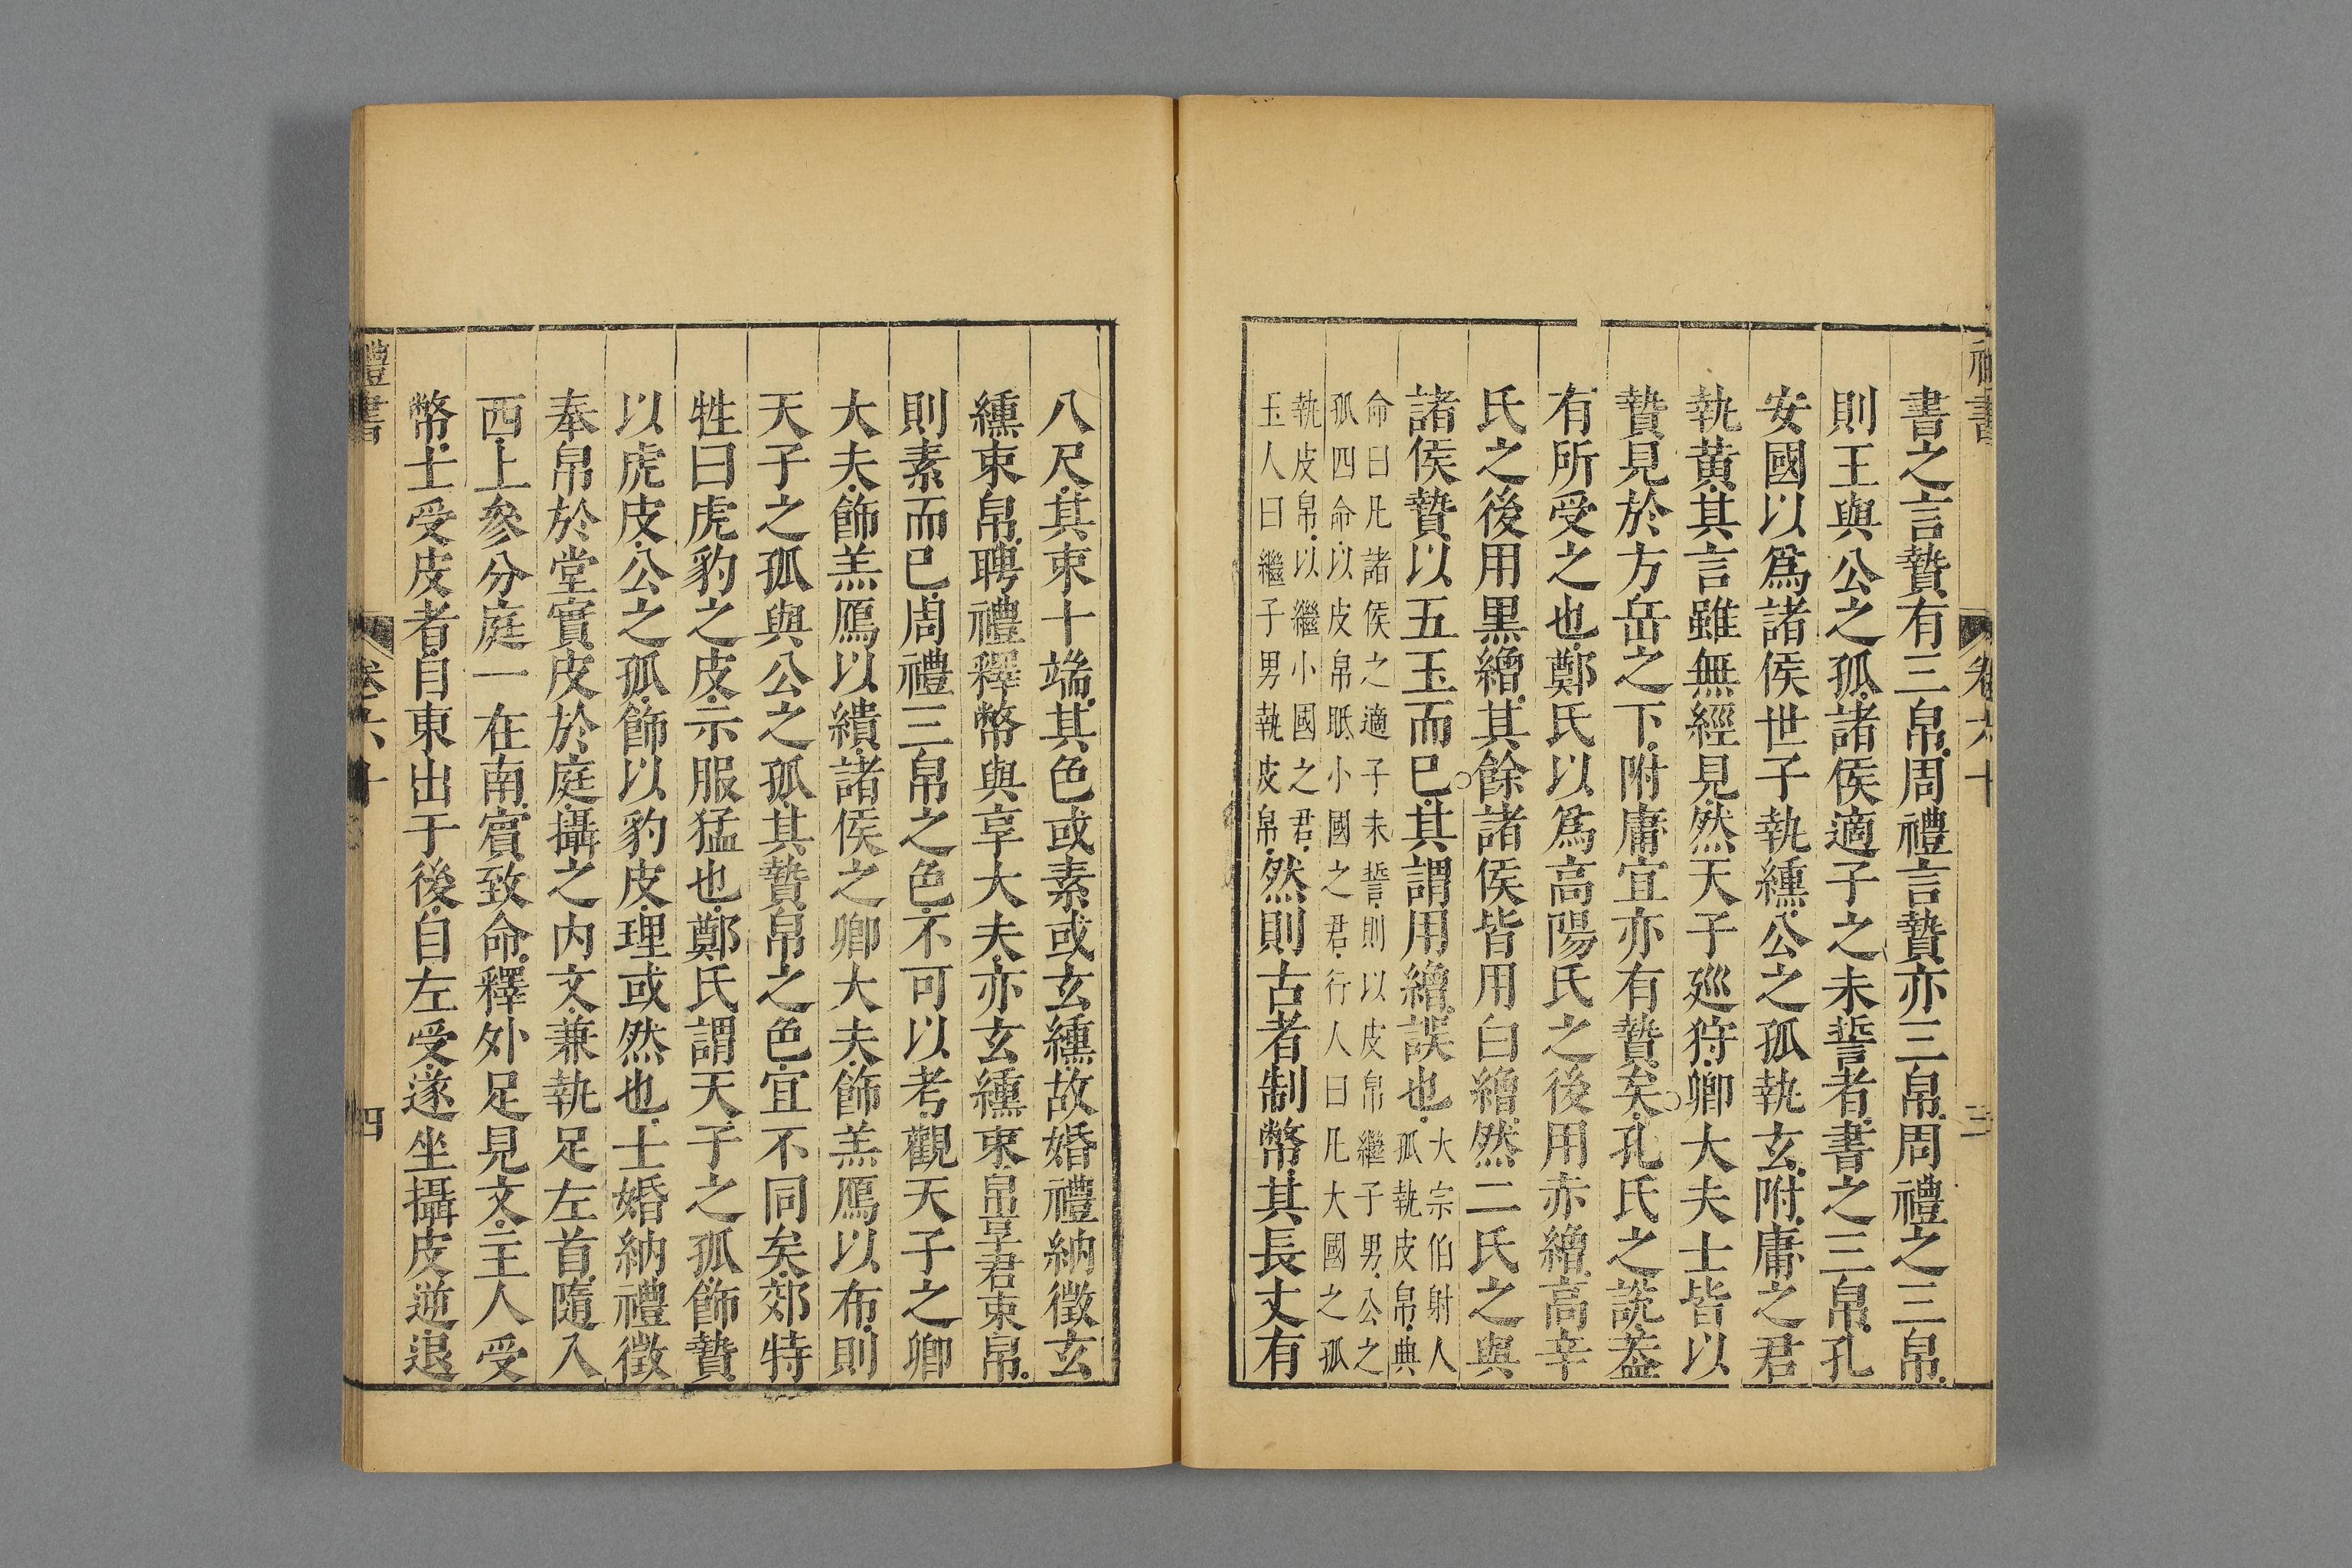 書之言贄有三帛周禮言贄亦三帛周禮之三帛
則王與公之孤諸侯適子之未誓者書之三帛孔
安國以爲諸侯世子執纁公之孤執玄附庸之君
執黃其言雖無經見然天子廵狩卿大夫士皆以
贄見於方岳之下附庸宜亦有贄矣孔氏之説葢
有所受之也鄭氏以爲高陽氏之後用赤繒高辛
氏之後用黑繒其餘諸侯皆用白繒然二氏之與
諸侯贄以五玉而已其謂用繒誤也
大宗伯射人
孤執皮帛典
命曰凡諸侯之適子未誓則以皮帛繼子男公之
孤四命以皮帛眡小國之君行人曰凡大國之孤
執皮帛以繼小國之君
玉人曰繼子男執皮帛
然則古者制幣其長丈有
禮書
卷六十
八尺其束十端其色或素或玄纁故婚禮納徵玄
纁束帛聘禮釋幣與享大夫亦玄纁束帛享君束帛
則素而已周禮三帛之色不可以考觀天子之卿
大夫飾羔鴈以繢諸侯之卿大夫飾羔鴈以布則
天子之孤與公之孤其贄帛之色宜不同矣郊特
牲曰虎豹之皮示服猛也鄭氏謂天子之孤飾贄
以虎皮公之孤飾以豹皮理或然也士婚納禮徵
奉帛於堂實皮於庭攝之内文兼執足左首隨入
西上參分庭一在南賔致命釋外足見文主人受
幣士受皮者自東出于後自左受遂坐攝皮逆退
禮書
卷六十
四